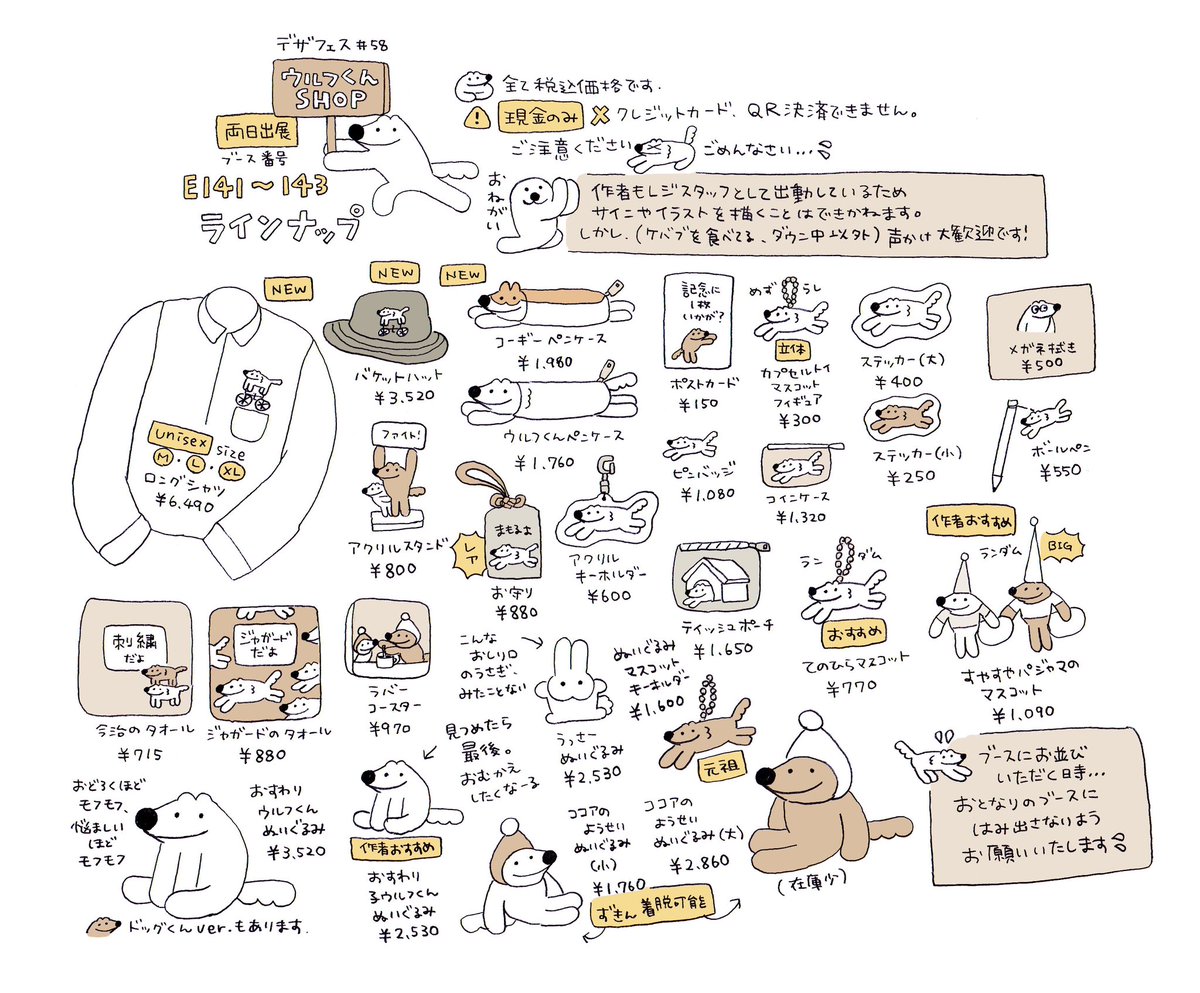 デザフェス#58
ウルフくん
SHOP
両日出展
ブース番号
E141〜143
ラインナップ
全て税込価格です.
現金のみ
クレジットカード、QR決済できません。
ご注意ください
ごめんなさい...
おねがい
作者もレジスタッフとして出動しているため
サインやイラストを描くことはできかねます。
しかし、(ケバブを食べてる、ダウン中以外)声かけ大歓迎です!
NEW
unisex size
M・L・XL
ロングシャツ
¥6,490
NEW
バケットハット
¥3,520
NEW
コーギーペンケース
¥1,980
ウルフくんペンケース
¥1,760
記念に
1枚
いかが?
ポストカード
¥150
めずらし
立体
カプセルトイ
マスコット
フィギュア
¥300
ステッカー(大)
¥400
メガネ拭き
¥500
ステッカー(小)
¥250
ボールペン
¥550
ピンバッジ
¥1,080
コインケース
¥1,320
ファイト!
アクリルスタンド
¥800
レア
まもるよ
お守り
¥880
アクリル
キーホルダー
¥600
ティッシュポーチ
¥1,650
ランダム
おすすめ
てのひらマスコット
¥770
作者おすすめ
ランダム
BIG
すやすやパジャマの
マスコット
¥1,090
刺繍
だよ
今治のタオール
¥715
ジャガード
だよ
ジャガードのタオール
¥880
ラバー
コースター
¥970
こんな
おしり口
のうさぎ、
みたことない
うっさー
ぬいぐるみ
¥2,530
ぬいぐるみ
マスコット
キーホルダー
¥1,600
元祖
見つめたら
最後。
おむかえ
したくなーる
おどろくほど
モフモフ、
悩ましい
ほど
モフモフ
おすわり
ウルフくん
ぬいぐるみ
¥3,520
ドッグくんver.もあります.
作者おすすめ
おすわり
子ウルフくん
ぬいぐるみ
¥2,530
ココアの
ようせい
ぬいぐるみ
(小)
¥1,760
ココアの
ようせい
ぬいぐるみ(大)
¥2,860
ずきん着脱可能
(在庫少)
ブースにお並び
いただく日寺...
おとなりのブースに
はみ出さないよう
お願いいたします